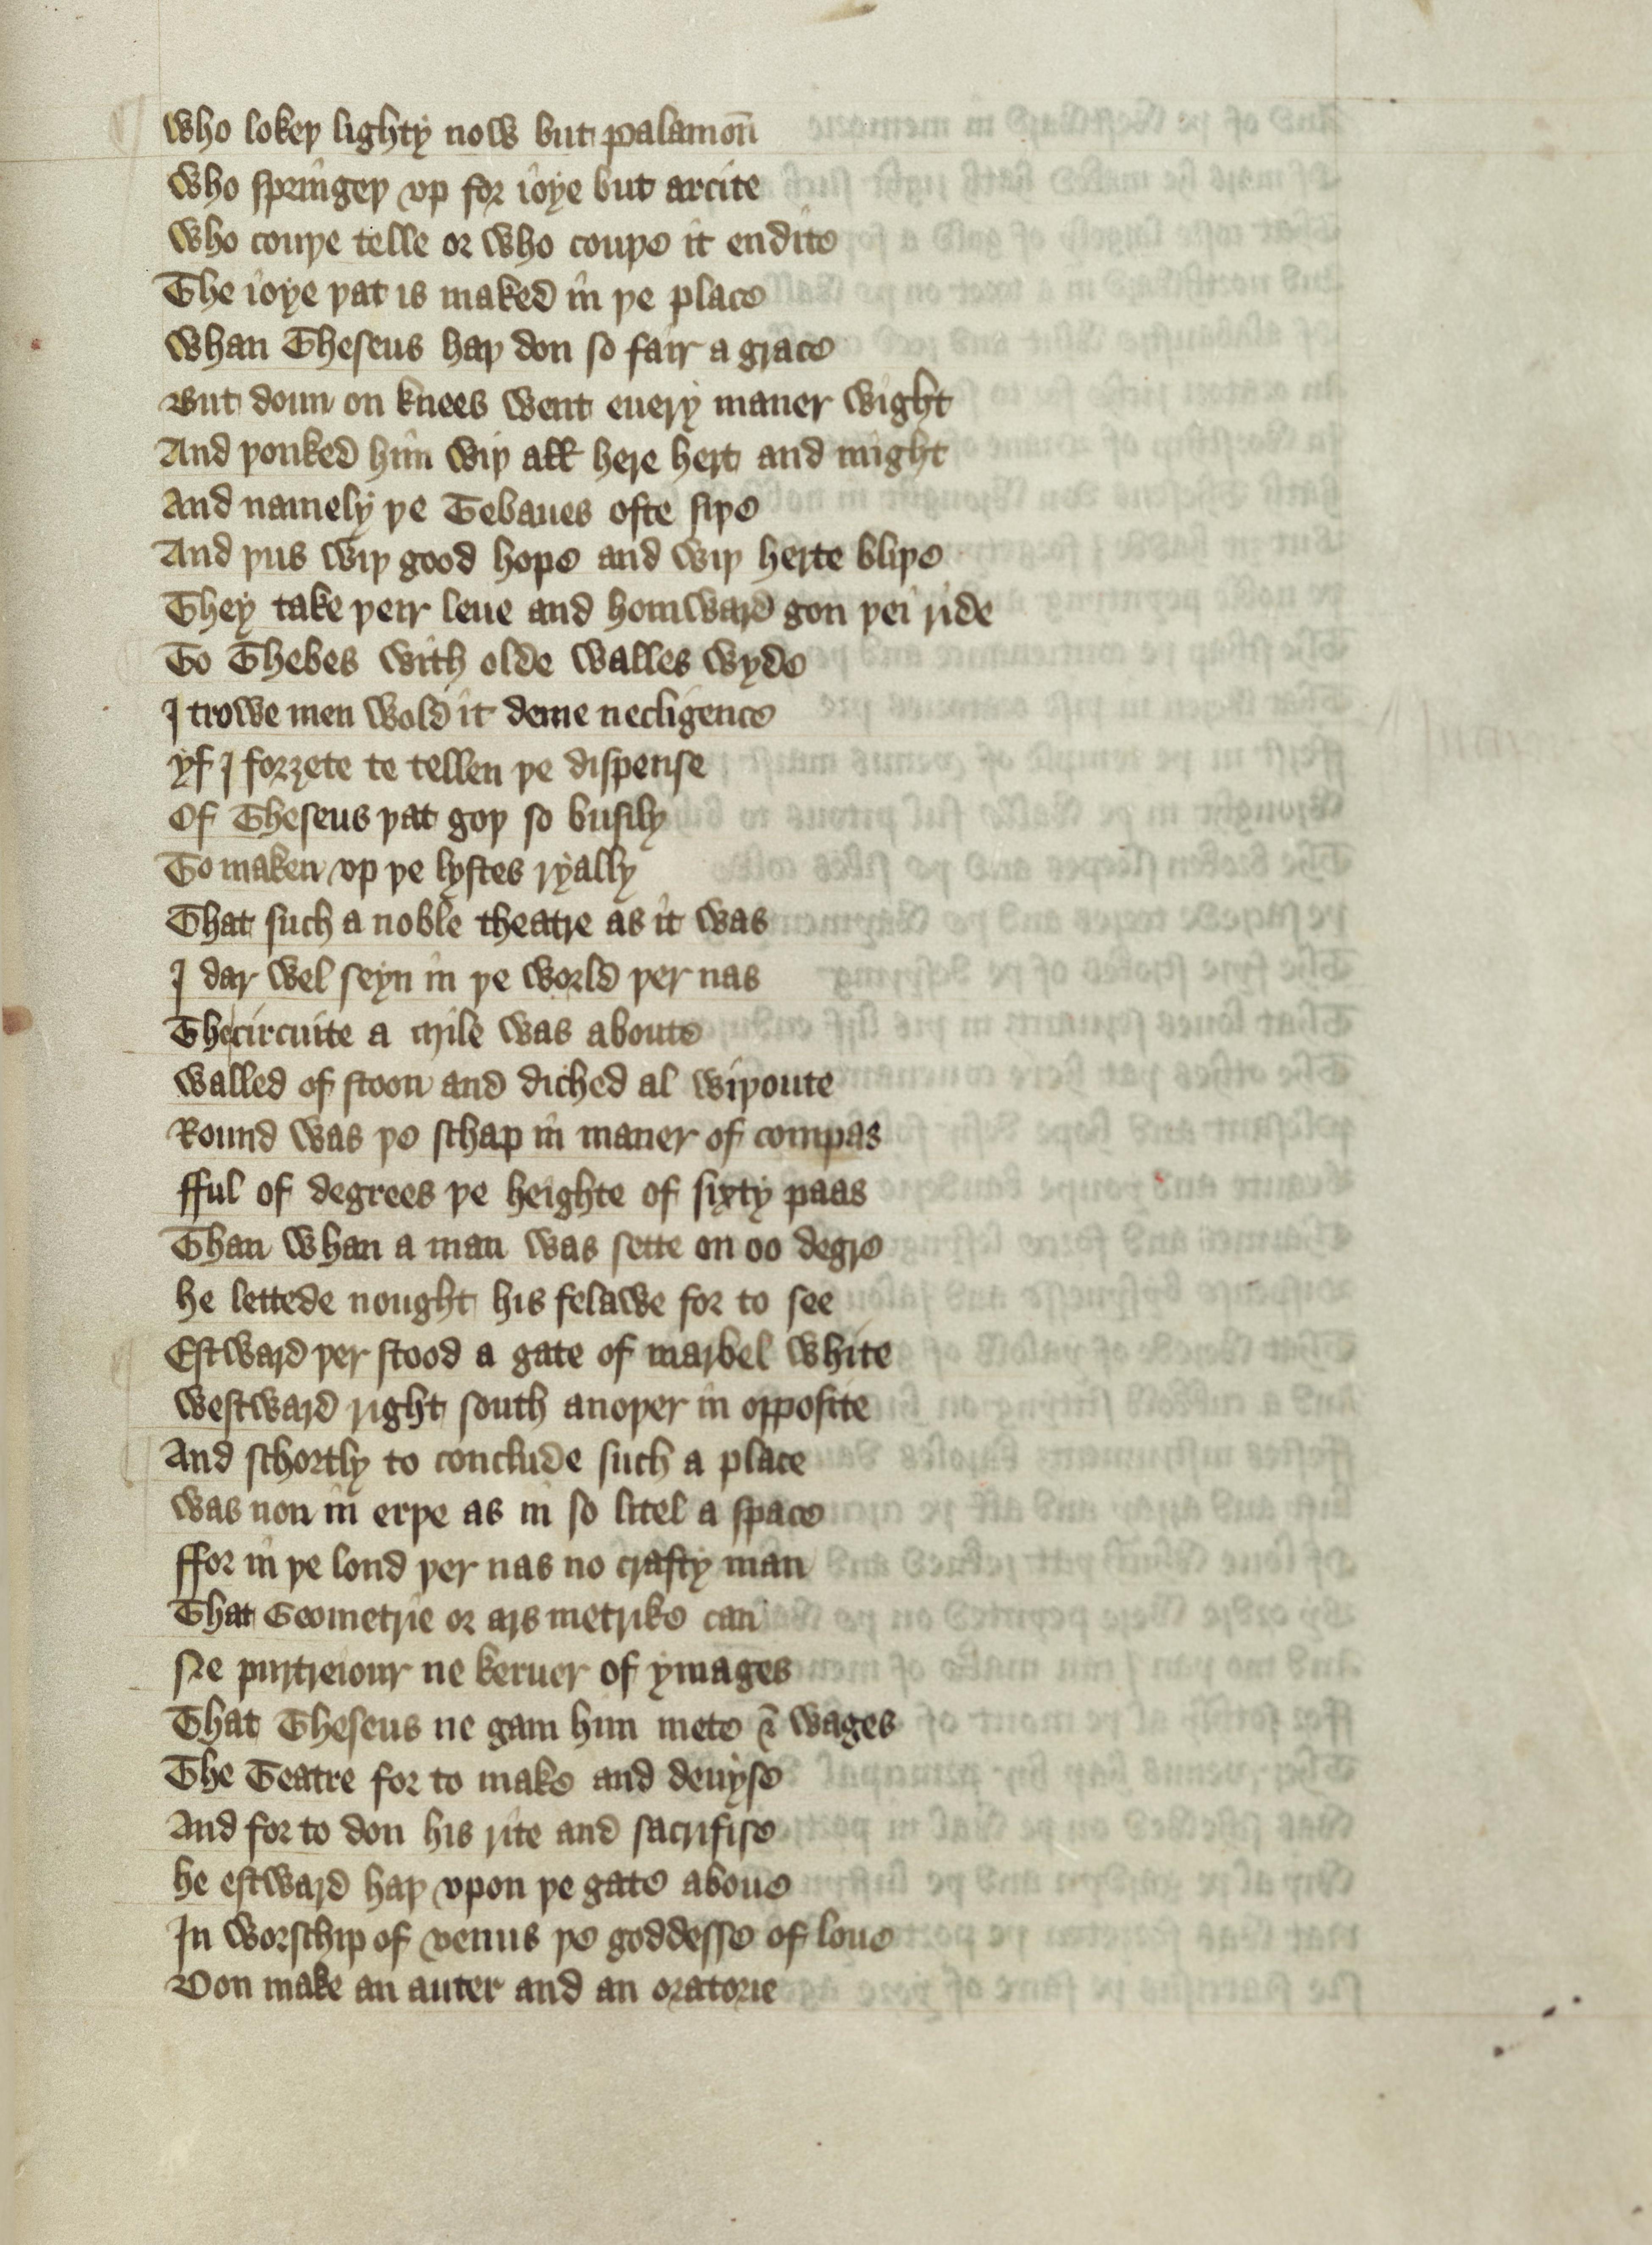 Who lokeþ lighty now but palamon̄
Who springeþ vp for ioye but arcite
Who couþe telle or who couþe it endite
The ioye þat is maked in þe place
Whan Theseus haþ don so fair a grace
But doun on knees went euery maner wight
And þonked him wiþ all here hert and might
And namely þe Tebanes ofte siþe
And þus wiþ good hope and wiþ herte bliþe
They take þeir leue and homward gon þei ride
To Thebes with olde walles wyde
I trowe men wold it deme necligence
yf I forȝete te tellen þe dispense
Of Theseus þat goþ so busily
To maken vp þe lystes ryally
That such a noble theatre as it was
I dar wel seyn in þe world þer nas
The circuite a mile was aboute
walled of stoon and diched al wiþoute
Round was þe schap in maner of compas
fful of degrees þe heighte of sixty paas
Than whan a man was sette on oo degre
he lettede nought his felawe for to see
Estward þer stood a gate of marbel white
westward right south anoþer in opposite
And schortly to conclude such a place
was non in erþe as in so litel a space
ffor in þe lond þer nas no crafty man
That Geometrie or ars metrike can
Ne purtreiour ne keruer of ymages
That Theseus ne gam him mete & wages
The Teatre for to make and deuyse
And for to don his rite and sacrifise
he estward haþ vpon þe gate aboue
In worschip of venus þe goddesse of loue
Don make an auter and an oratorie